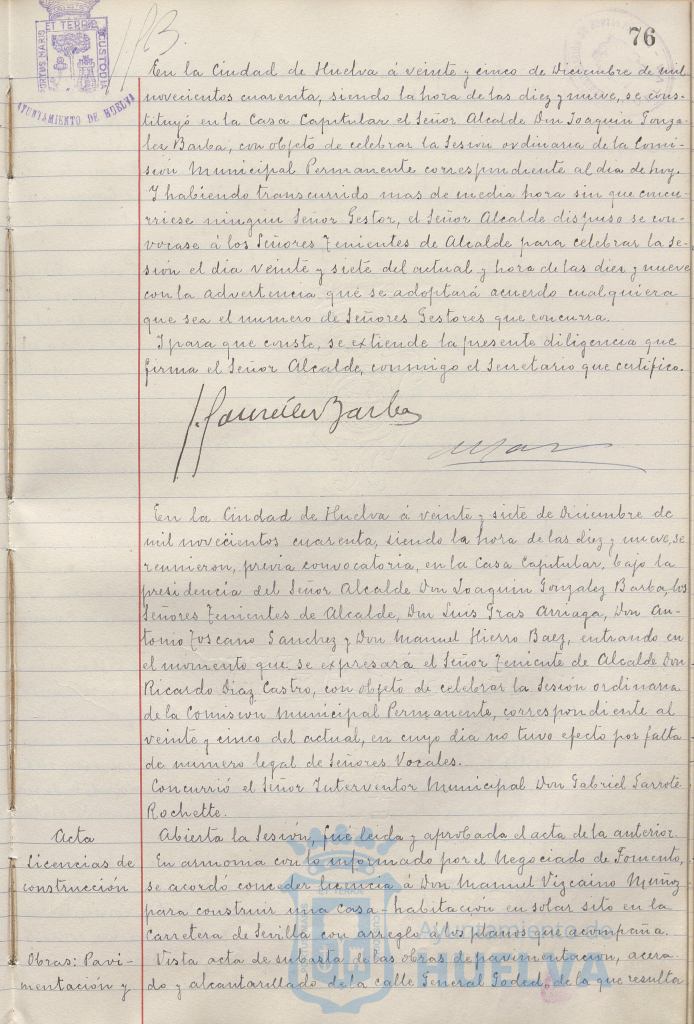 PORTUS MARIS
ET TERRÆ
CUSTODIA
AYUNTAMIENTO DE HUELVA
76
En la Ciudad de Huelva á veinte y cinco de Diciembre de mil
novecientos cuarenta, siendo la hora de las diez y nueve, se cons-
tituyó en la Casa Capitular el Señor Alcalde Don Joaquin Gonza-
lez Barba, con objeto de celebrar la Sesion ordinaria de la Comi-
sión Municipal Permanente correspondiente al dia de hoy.
Y habiendo transcurrido mas de media hora sin que concu-
rriese ningun Señor Gestor, el Señor Alcalde dispuso se con-
vocase á los Señores Tenientes de Alcalde para celebrar la Se-
sión el dia veinte y siete del actual y hora de las diez y nueve
con la advertencia que se adoptará acuerdo cualquiera
que sea el numero de Señores Gestores que concurra.
Y para que conste, se extiende la presente diligencia que
firma el Señor Alcalde, conmigo el Secretario que certifico.
J. González Barba
En la Ciudad de Huelva á veinte y siete de Diciembre de
mil novecientos cuarenta, siendo la hora de las diez y nueve, se
reunieron, previa convocatoria, en la Casa Capitular, bajo la
presidencia del Señor Alcalde Don Joaquin Gonzalez Barba, los
Señores Tenientes de Alcalde, Don Luis Gras Arriaga, Don An-
tonio Toscano Sanchez y Don Manuel Hierro Baez, entrando en
el momento que se expresará el Señor Teniente de Alcalde Don
Ricardo Diaz Castro, con objeto de celebrar la Sesión ordinaria
de la Comision Municipal Permanente, correspondiente al
veinte y cinco del actual, en cuyo dia no tuvo efecto por falta
de numero legal de Señores Vocales.
Concurrió el Señor Interventor Municipal Don Gabriel Garrote
Rochette.
Acta
Abierta la Sesión, fue leida y aprobada el acta de la anterior.
Licencias de
construcción
En armonia con lo informado por el Negociado de Fomento,
se acordó conceder licencia á Don Manuel Vizcaino Muñoz
para construir una casa-habitación en solar sito en la
Carretera de Sevilla con arreglo a los planos que acompaña.
Obras: Pavi-
mentación y
Vista acta de subasta de las obras de pavimentacion, acera-
do y alcantarillado de la calle General Goded, de la que resulta
Ayuntamiento de
HUELVA